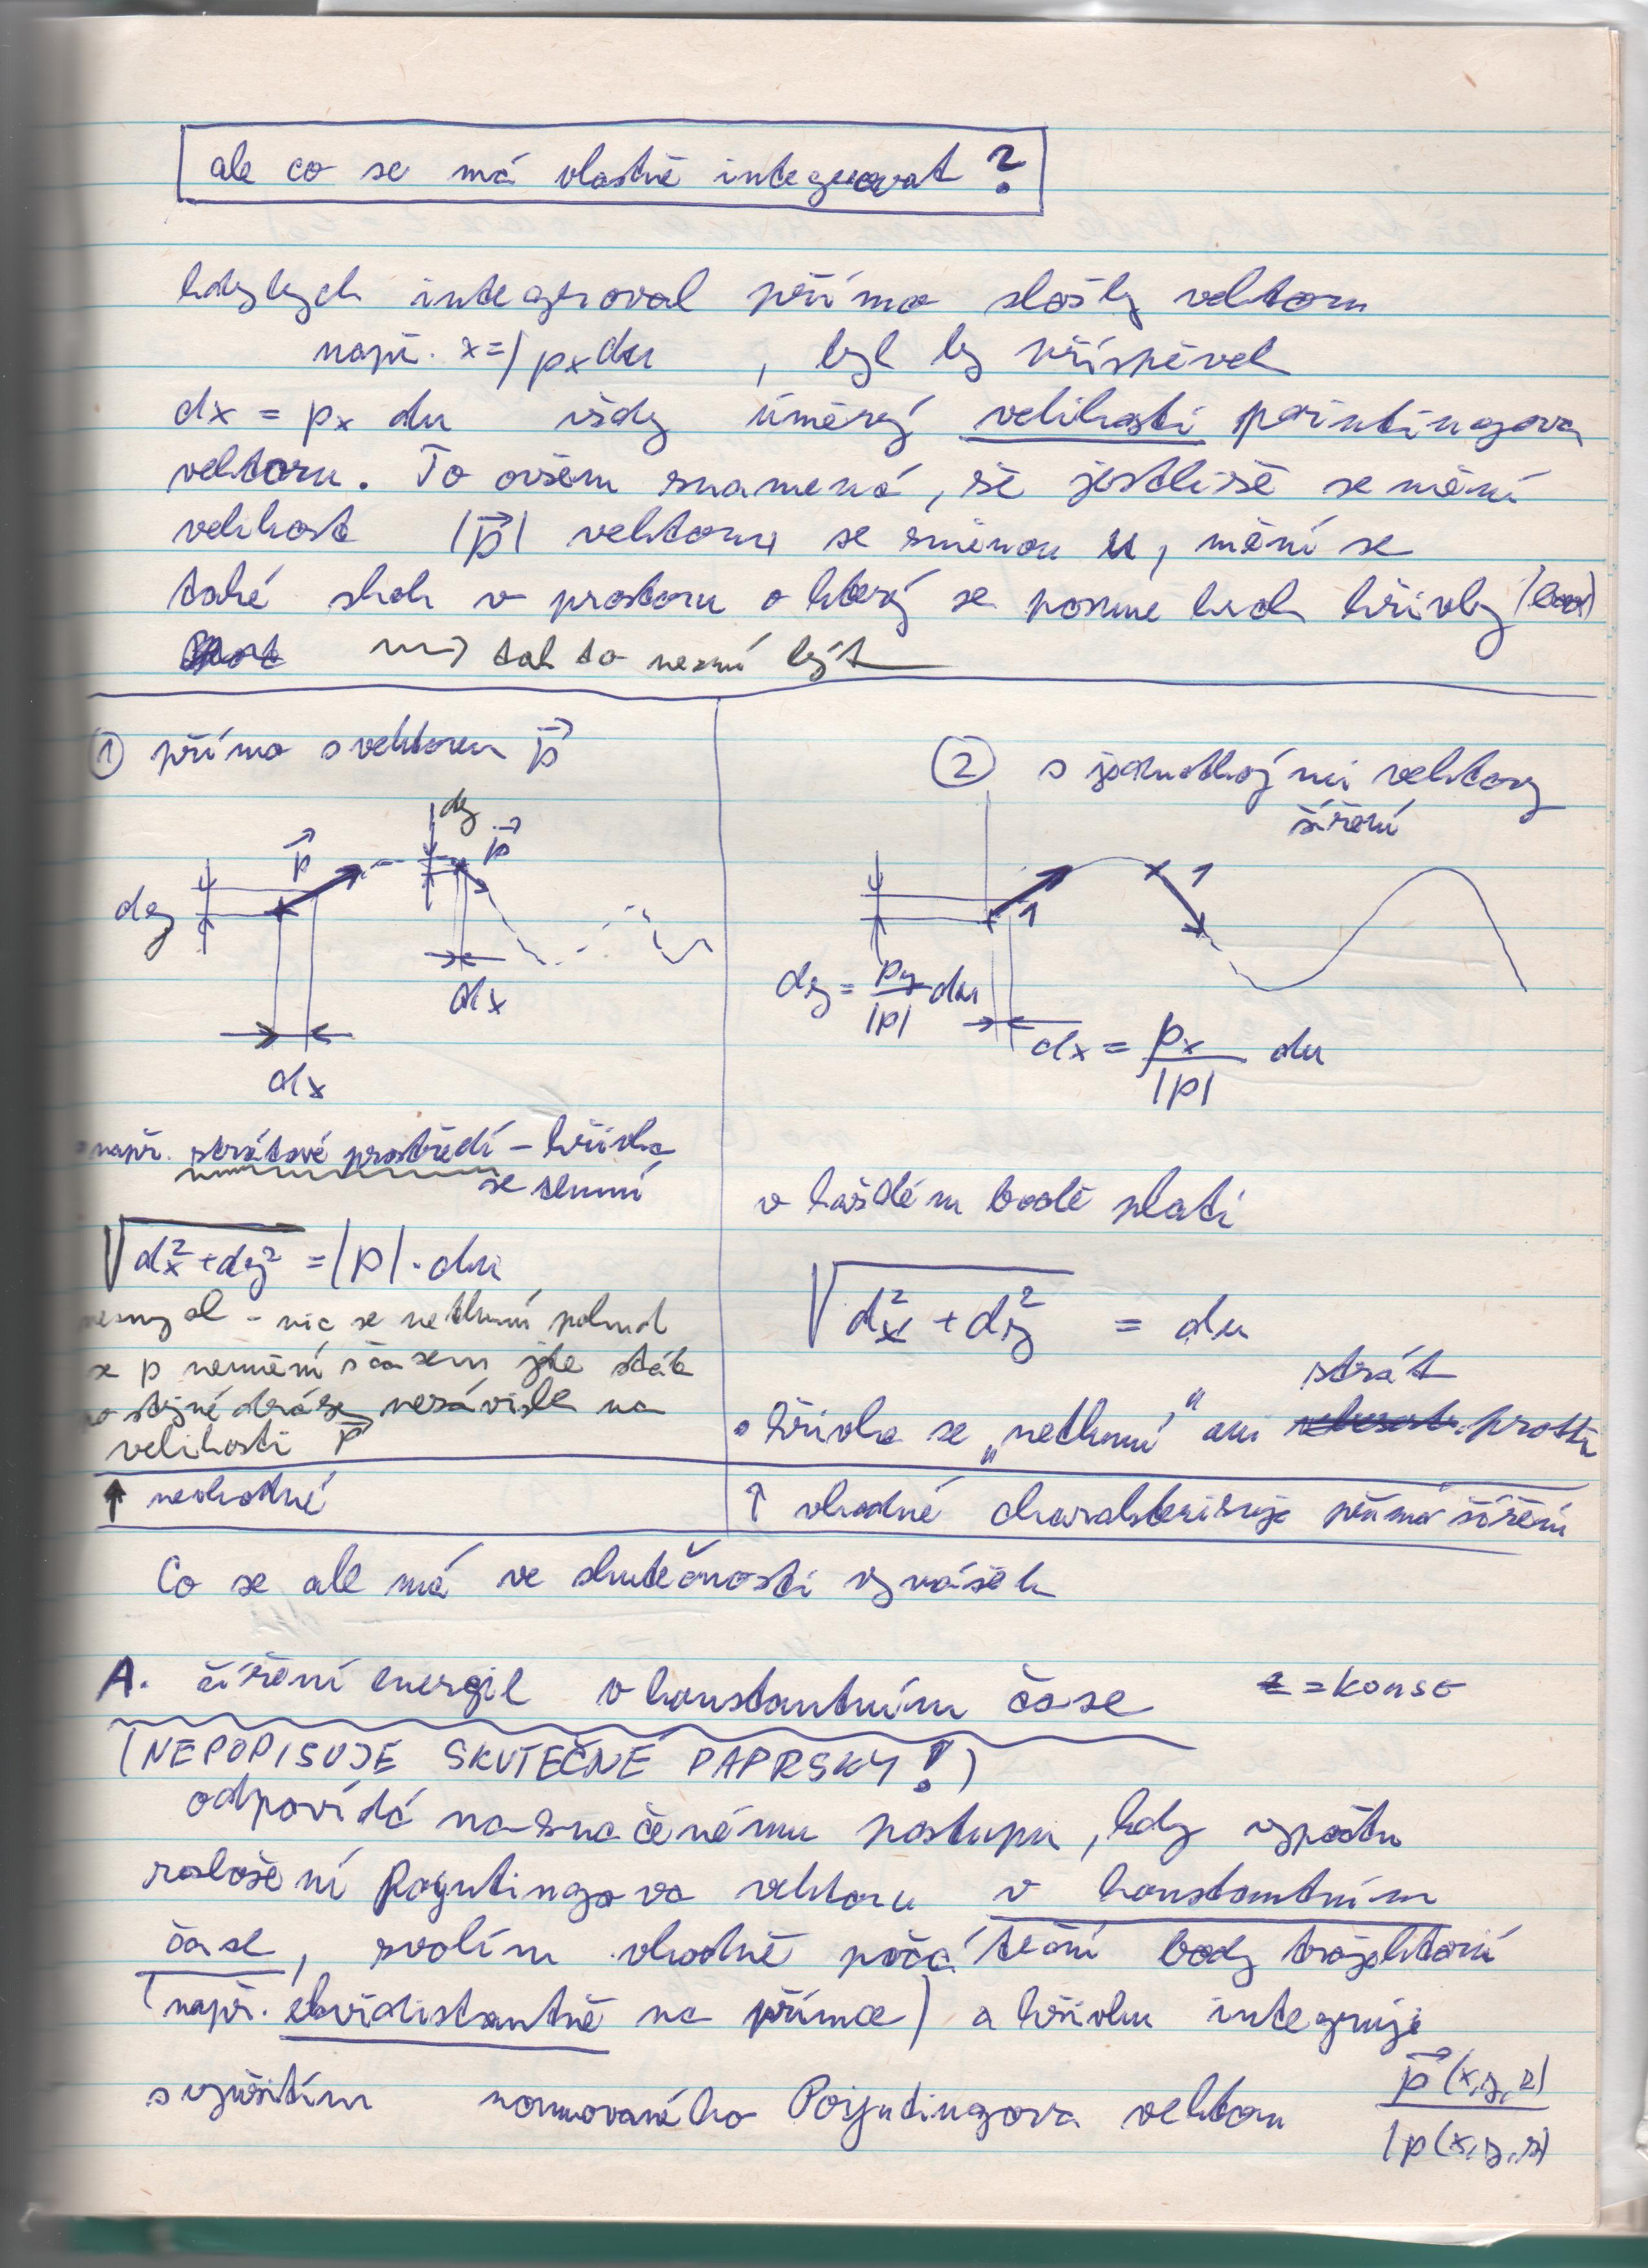 ale co se má vlastně integrovat ?
kdybych integroval přímo složky vektoru
např. x=∫ pₓ du , byl by příspěvek
dx = pₓ du vždy úměrný velikosti pointingova
vektoru. To ovšem znamená, že jestliže se mění
velikost |p⃗| vektoru se změnou u, mění se
také skok v prostoru o který se posune bod křivky
⟿ tak to nesmí být
① přímo s vektorem p⃗
dy p⃗ dy p⃗
dx
dx
např. ztrátové prostředí – křivka
se tlumí
√dx²+dy² = |p| · du
nesmysl – nic se netlumí pokud
se p nemění s časem jde stále
po stejné dráze nezávisle na
velikosti p⃗
↑ nevhodné
② s jednotkovými vektory
šíření
1 1
dy = p_y/|p| du
dx = pₓ/|p| du
v každém bodě platí
√dx²+dy² = du
ztrát
• křivka se „netlumí" ani prostř
↑ vhodné charakterizuje přímo šíření
Co se ale má ve skutečnosti vynášet
A. šíření energie v konstantním čase t = konst
(NEPOPISUJE SKUTEČNÉ PAPRSKY!)
odpovídá naznačenému postupu, kdy vypočtu
rozložení Poyntingova vektoru v konstantním
čase, zvolím vhodně počáteční body trajektorií
(např. ekvidistantně na přímce) a křivku integruji
s využitím normovaného Poyntingova vektoru p⃗(x,y,z)/|p(x,y,z)|